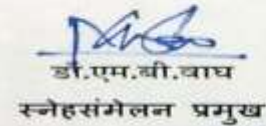 डॉ.एम.बी.वाघ
स्नेहसंमेलन प्रमुख